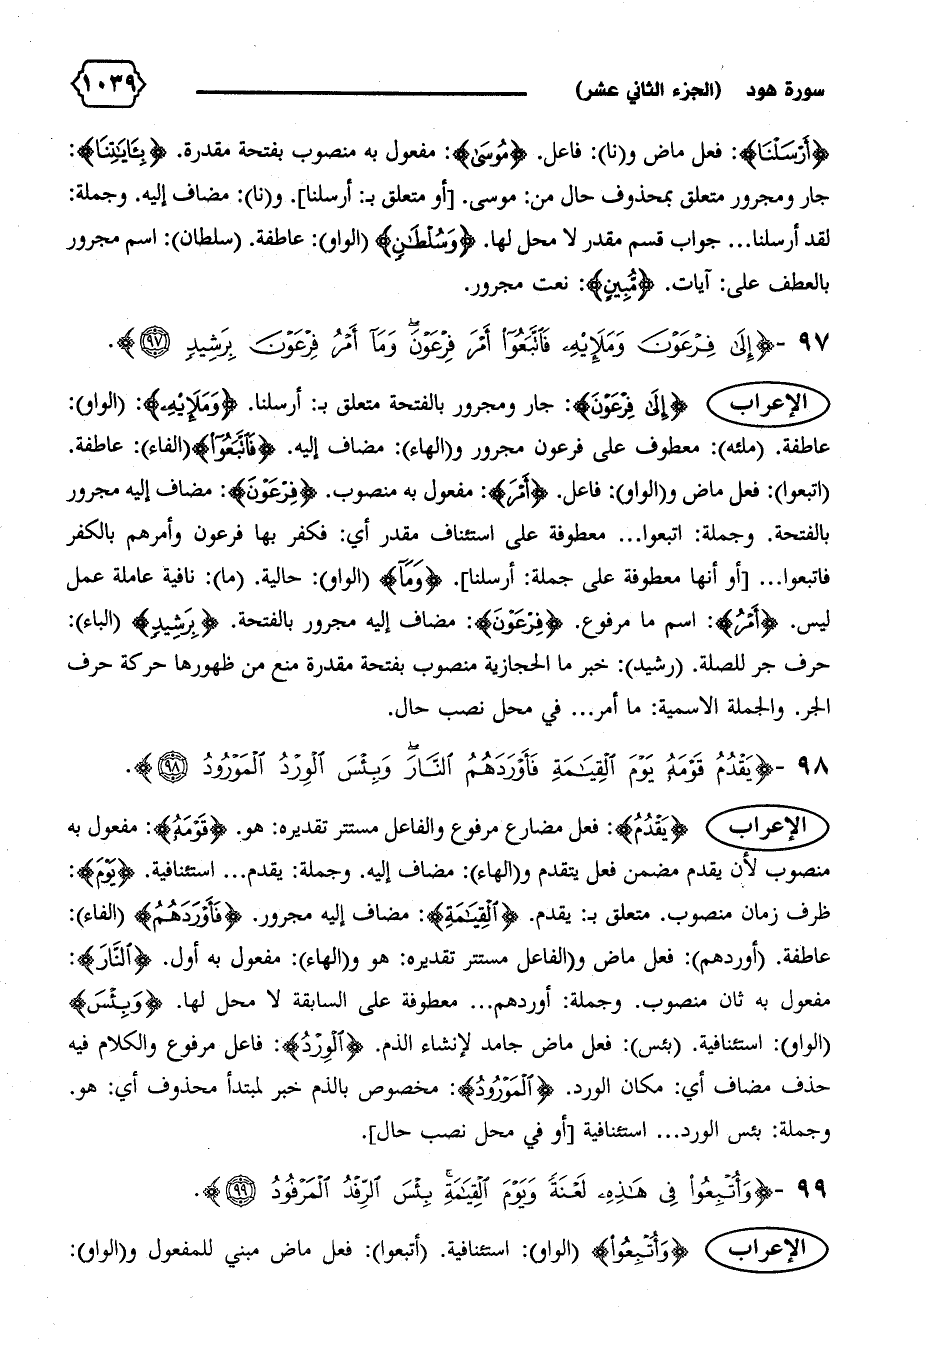 سورة هود (الجزء الثاني عشر) ١٠٣٩
﴿أَرْسَلْنَا﴾: فعل ماض و(نا): فاعل. ﴿مُوسَىٰ﴾: مفعول به منصوب بفتحة مقدرة. ﴿بِـَٔايَـٰتِنَا﴾:
جار ومجرور متعلق بمحذوف حال من: موسى. [أو متعلق بـ: أرسلنا]. و(نا): مضاف إليه. وجملة:
لقد أرسلنا... جواب قسم مقدر لا محل لها. ﴿وَسُلْطَـٰنٍ﴾ (الواو): عاطفة. (سلطان): اسم مجرور
بالعطف على: آيات. ﴿مُّبِينٍ﴾: نعت مجرور.
٩٧ -﴿إِلَىٰ فِرْعَوْنَ وَمَلَإِيْهِۦ فَٱتَّبَعُوٓا۟ أَمْرَ فِرْعَوْنَ ۖ وَمَآ أَمْرُ فِرْعَوْنَ بِرَشِيدٍ ﴿٩٧﴾﴾.
الإعراب ﴿إِلَىٰ فِرْعَوْنَ﴾: جار ومجرور بالفتحة متعلق بـ: أرسلنا. ﴿وَمَلَإِيْهِۦ﴾: (الواو):
عاطفة. (ملئه): معطوف على فرعون مجرور و(الهاء): مضاف إليه. ﴿فَٱتَّبَعُوٓا۟﴾(الفاء): عاطفة.
(اتبعوا): فعل ماض و(الواو): فاعل. ﴿أَمْرَ﴾: مفعول به منصوب. ﴿فِرْعَوْنَ﴾: مضاف إليه مجرور
بالفتحة. وجملة: اتبعوا... معطوفة على استئناف مقدر أي: فكفر بها فرعون وأمرهم بالكفر
فاتبعوا... [أو أنها معطوفة على جملة: أرسلنا]. ﴿وَمَآ﴾ (الواو): حالية. (ما): نافية عاملة عمل
ليس. ﴿أَمْرُ﴾: اسم ما مرفوع. ﴿فِرْعَوْنَ﴾: مضاف إليه مجرور بالفتحة. ﴿بِرَشِيدٍ﴾ (الباء):
حرف جر للصلة. (رشيد): خبر ما الحجازية منصوب بفتحة مقدرة منع من ظهورها حركة حرف
الجر. والجملة الاسمية: ما أمر... في محل نصب حال.
٩٨ -﴿يَقْدُمُ قَوْمَهُۥ يَوْمَ ٱلْقِيَـٰمَةِ فَأَوْرَدَهُمُ ٱلنَّارَ ۖ وَبِئْسَ ٱلْوِرْدُ ٱلْمَوْرُودُ ﴿٩٨﴾﴾.
الإعراب ﴿يَقْدُمُ﴾: فعل مضارع مرفوع والفاعل مستتر تقديره: هو. ﴿قَوْمَهُۥ﴾: مفعول به
منصوب لأن يقدم مضمن فعل يتقدم و(الهاء): مضاف إليه. وجملة: يقدم... استئنافية. ﴿يَوْمَ﴾:
ظرف زمان منصوب. متعلق بـ: يقدم. ﴿ٱلْقِيَـٰمَةِ﴾: مضاف إليه مجرور. ﴿فَأَوْرَدَهُمُ﴾ (الفاء):
عاطفة. (أوردهم): فعل ماض و(الفاعل مستتر تقديره: هو و(الهاء): مفعول به أول. ﴿ٱلنَّارَ﴾:
مفعول به ثان منصوب. وجملة: أوردهم... معطوفة على السابقة لا محل لها. ﴿وَبِئْسَ﴾
(الواو): استئنافية. (بئس): فعل ماض جامد لإنشاء الذم. ﴿ٱلْوِرْدُ﴾: فاعل مرفوع والكلام فيه
حذف مضاف أي: مكان الورد. ﴿ٱلْمَوْرُودُ﴾: مخصوص بالذم خبر لمبتدأ محذوف أي: هو.
وجملة: بئس الورد... استئنافية [أو في محل نصب حال].
٩٩ -﴿وَأُتْبِعُوا۟ فِى هَـٰذِهِۦ لَعْنَةً وَيَوْمَ ٱلْقِيَـٰمَةِ ۚ بِئْسَ ٱلرِّفْدُ ٱلْمَرْفُودُ ﴿٩٩﴾﴾.
الإعراب ﴿وَأُتْبِعُوا۟﴾ (الواو): استئنافية. (أتبعوا): فعل ماض مبني للمفعول و(الواو):